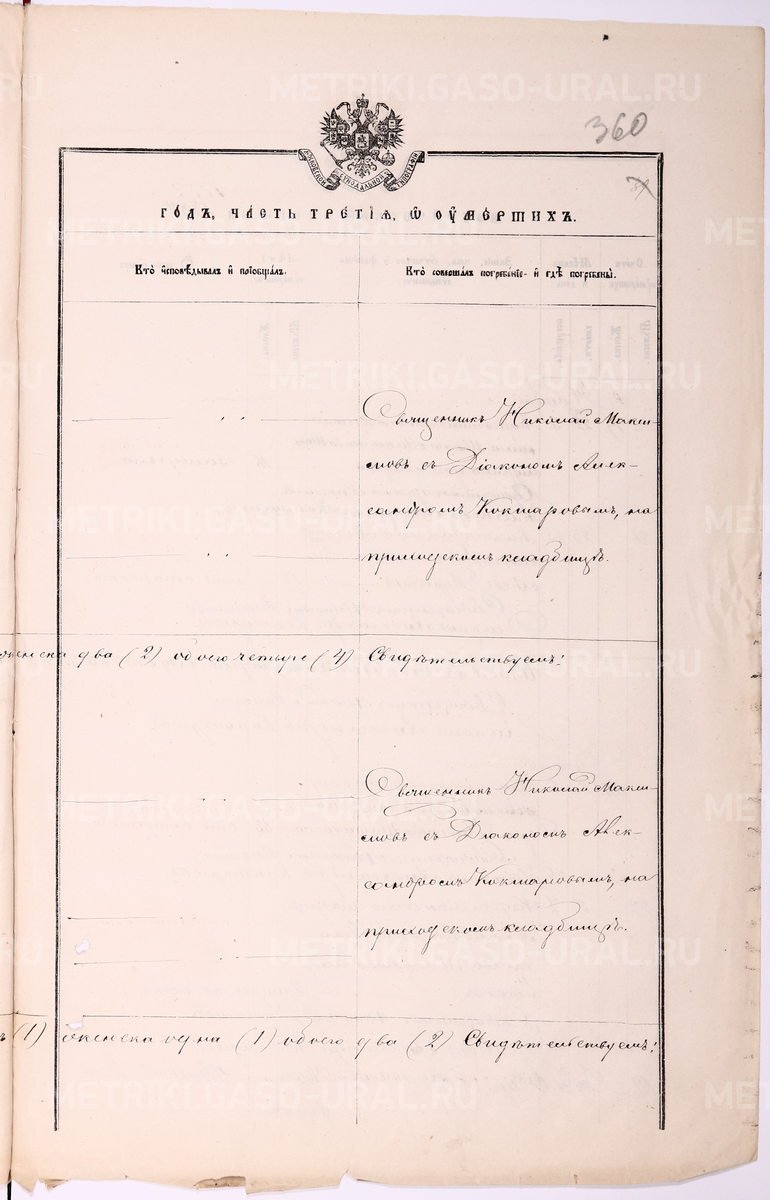 METRIKI.GASO-URAL.RU
360
МОСКОВСКОЙ СѴНОДАЛЬНОЙ ТИПОГРАФІИ
ГОДЪ, ЧАСТЬ ТРЕТІЯ, Ѿ ОУМЕРШИХЪ.
Кто исповѣдывалъ и пріобщалъ.
Кто совершалъ погребеніе и гдѣ погребены.
Священникъ Николай Макси-
мовъ съ Діакономъ Алек-
сандромъ Кокшаровымъ, на
приходскомъ кладбищѣ.
женска два (2) обоего четыре (4) Свидѣтельствуемъ:
Священникъ Николай Макси-
мовъ съ Діакономъ Алек-
сандромъ Кокшаровымъ, на
приходскомъ кладбищѣ.
ъ (1) женска одна (1) обоего два (2) Свидѣтельствуемъ: